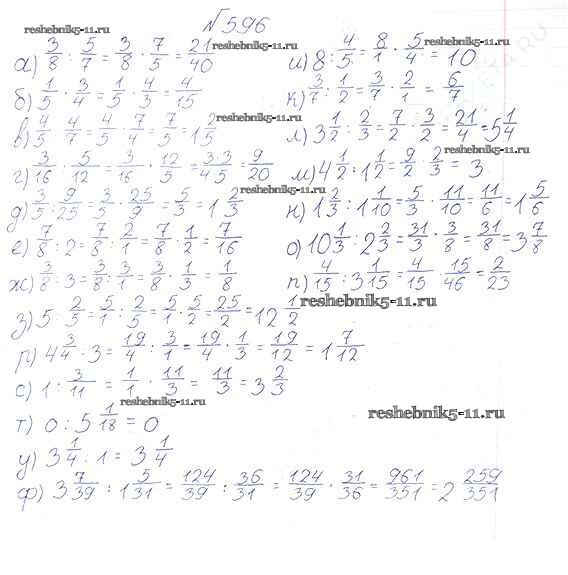 №596
reshebnik5-11.ru
а) 3/8 : 5/7 = 3/8 · 7/5 = 21/40
б) 1/5 : 3/4 = 1/5 · 4/3 = 4/15
reshebnik5-11.ru
в) 4/5 : 4/7 = 4/5 · 7/4 = 7/5 = 1 2/5
г) 3/16 : 5/12 = 3/16 · 12/5 = 3·3/4·5 = 9/20
д) 3/5 : 9/25 = 3/5 · 25/9 = 5/3 = 1 2/3
е) 7/8 : 2 = 7/8 : 2/1 = 7/8 · 1/2 = 7/16
ж) 3/8 : 3 = 3/8 : 3/1 = 3/8 · 1/3 = 1/8
з) 5 : 2/5 = 5/1 : 2/5 = 5/1 · 5/2 = 25/2 = 12 1/2
р) 4 3/4 · 3 = 19/4 : 3/1 = 19/4 · 1/3 = 19/12 = 1 7/12
с) 1 : 3/11 = 1/1 · 11/3 = 11/3 = 3 2/3
reshebnik5-11.ru
т) 0 : 5 1/18 = 0
у) 3 1/4 : 1 = 3 1/4
ф) 3 7/39 : 1 5/31 = 124/39 : 36/31 = 124/39 · 31/36 = 961/351 = 2 259/351
и) 8 : 4/5 = 8/1 · 5/4 = 10
reshebnik5-11.ru
к) 3/7 : 1/2 = 3/7 · 2/1 = 6/7
л) 3 1/2 : 2/3 = 7/2 · 3/2 = 21/4 = 5 1/4
reshebnik5-11.ru
м) 4 1/2 : 1 1/2 = 9/2 · 2/3 = 3
reshebnik5-11.ru
н) 1 2/3 : 1 1/10 = 5/3 · 11/10 = 11/6 = 1 5/6
о) 10 1/3 : 2 2/3 = 31/3 · 3/8 = 31/8 = 3 7/8
п) 4/15 : 3 1/15 = 4/15 · 15/46 = 2/23
reshebnik5-11.ru
reshebnik5-11.ru